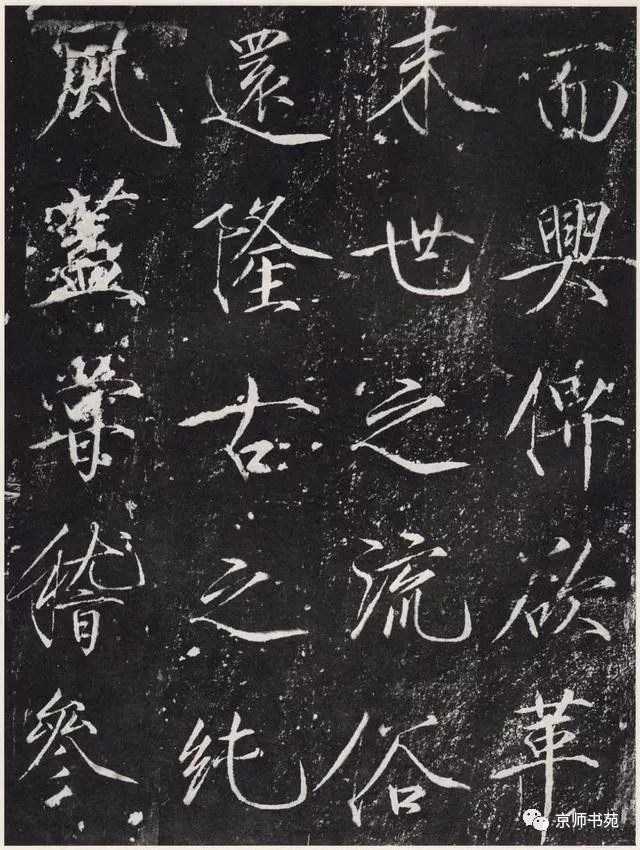 而興俾欲革
末世之流俗
還隆古之純
風蓋嘗稽參
京师书苑